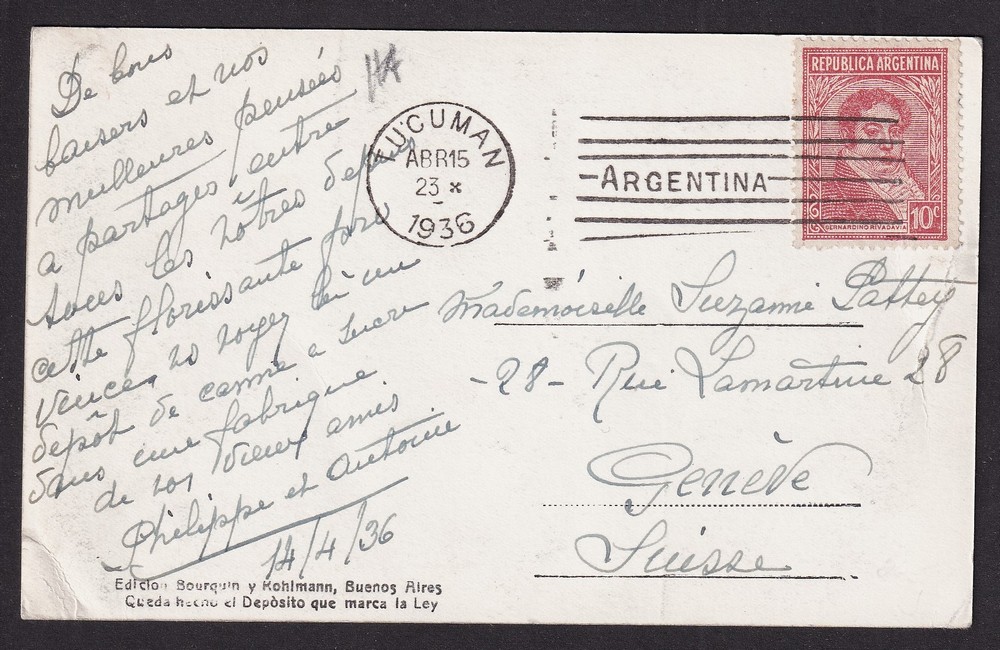 De bons
baisers et nos
meilleures pensées
a partager entre
tous les nôtres depuis
cette florissante
vous voyez ici un
depôt de canne a sucre
dans une fabrique
de nos vieux amis
Philippe et Antoine
14/4/36
Edicion Bourquin y Kohlmann, Buenos Aires
Queda hecho el Depòsito que marca la Ley
HA
TUCUMAN
ABR15
23 x
1936
ARGENTINA
REPUBLICA ARGENTINA
10c
BERNARDINO RIVADAVIA
Mademoiselle Suzanne Pattey
-28- Rue Lamartine 28
Genève
Suisse